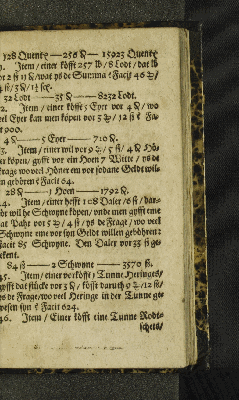 128 Quentz — 256 — 15923 Quentz
Item / einer köfft 257 lb / 8 Lodt / dat lb
vor 2 ß 11 / wat ys de Summa? Facit 46
32 Lodt — 35 — 8232 Lodt.
2. Item / einer köfft 5 Eyer vor 4 / wo
veel Eyer kan men köpen vor 3 / 12 ß
Fa-
cit 900.
4 — 5 Eyer — 710
3. Item / einer wil vor 9 / 5 ß / 4 Hö-
ner köpen / gyfft vor ein Hoen 7 Witte / ys de
Frage wo veel Höner em vor sodane Geldt wil-
len gehören? Facit 64.
28 — 1 Hoen — 1792
4. Item / einer hefft 108 Daler / 6 ß / dar-
vör wil he Schwyne köpen / unde men gyfft eme
dat Pahr vor 5 / 4 ß / ys de Frage / wo veel
Schwyne eme vor syn Geldt willen gehören?
Facit 85 Schwyne. Den Daler vor 33 ß ge-
rekent.
84 ß — 2 Schwyne — 3570 ß.
45. Item / einer verköfft 1 Tunne Heringes /
gyfft dat stücke vor 3 / köfft daruth 9 / 12 ß /
ys de Frage / wo veel Heringe in der Tunne ge-
wesen syn? Facit 624.
46. Item / Einer köfft eine Tunne Rodt-
schers /